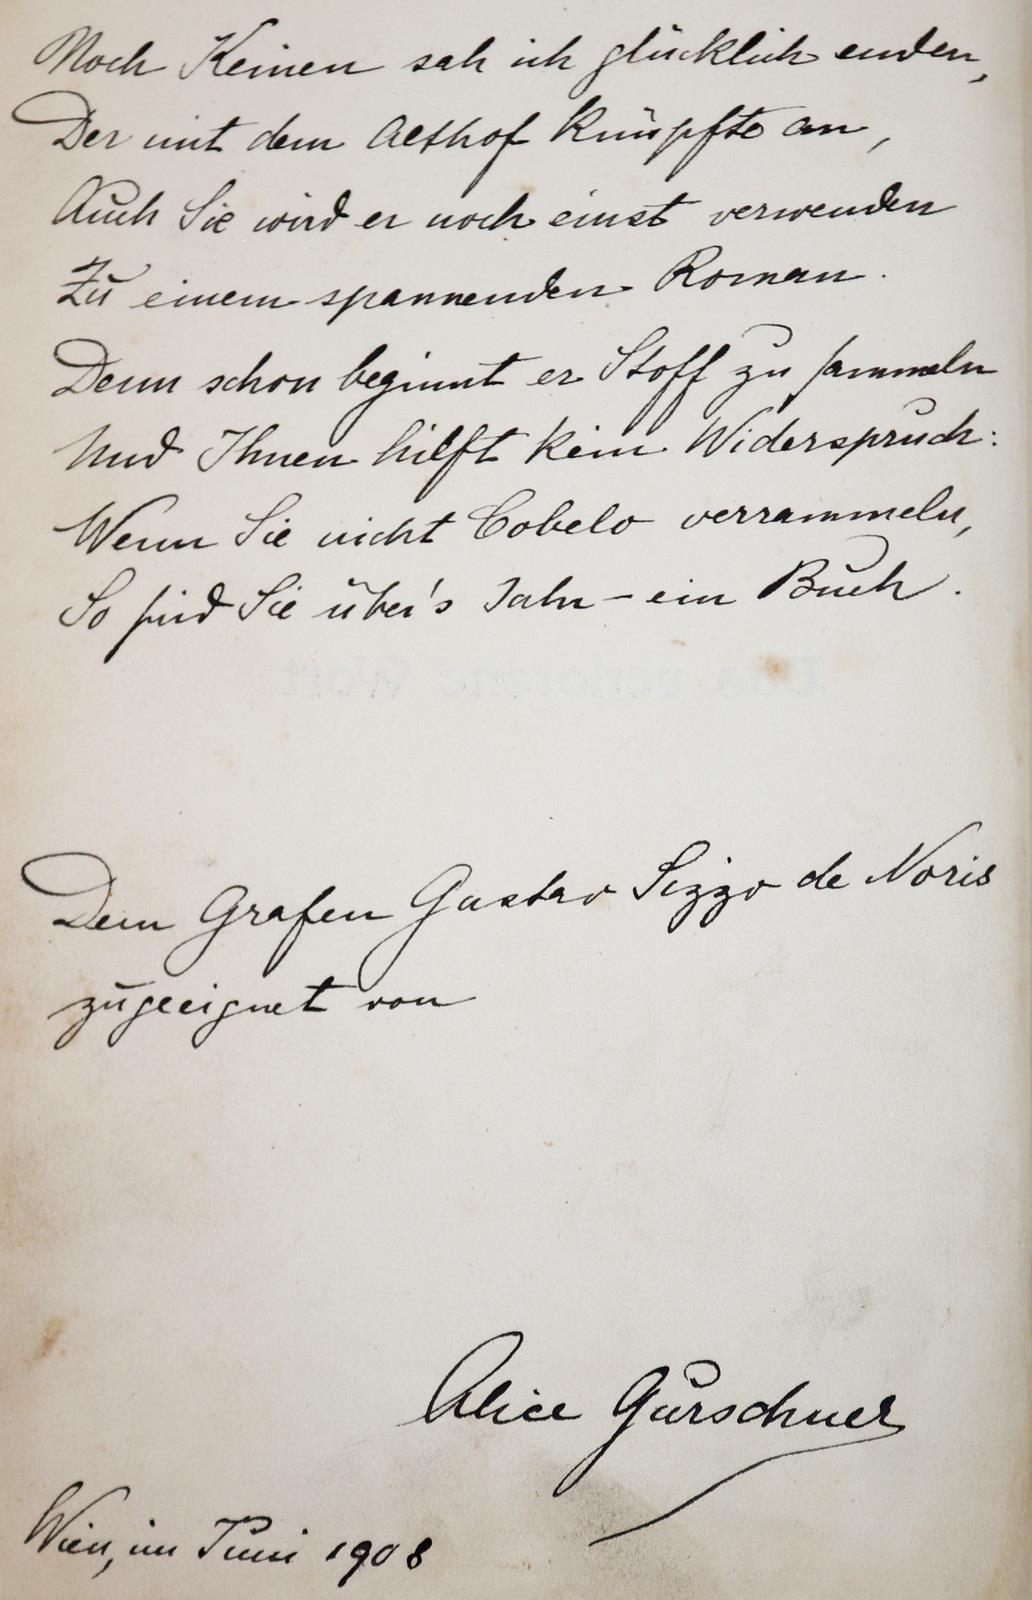 Noch Keinen sah ich glücklich enden,
Der mit dem Althof knüpfte an,
Auch Sie wird er noch einst verwenden
Zu einem spannenden Roman.
Denn schon beginnt er Stoff zu sammeln
Und Ihnen hilft kein Widerspruch:
Wenn Sie nicht Cobelo verrammeln,
So sind Sie über's Jahr – ein Buch.
Dem Grafen Gustav Sizzo de Noris
zugeeignet von
Alice Gurschner
Wien, im Juni 1908